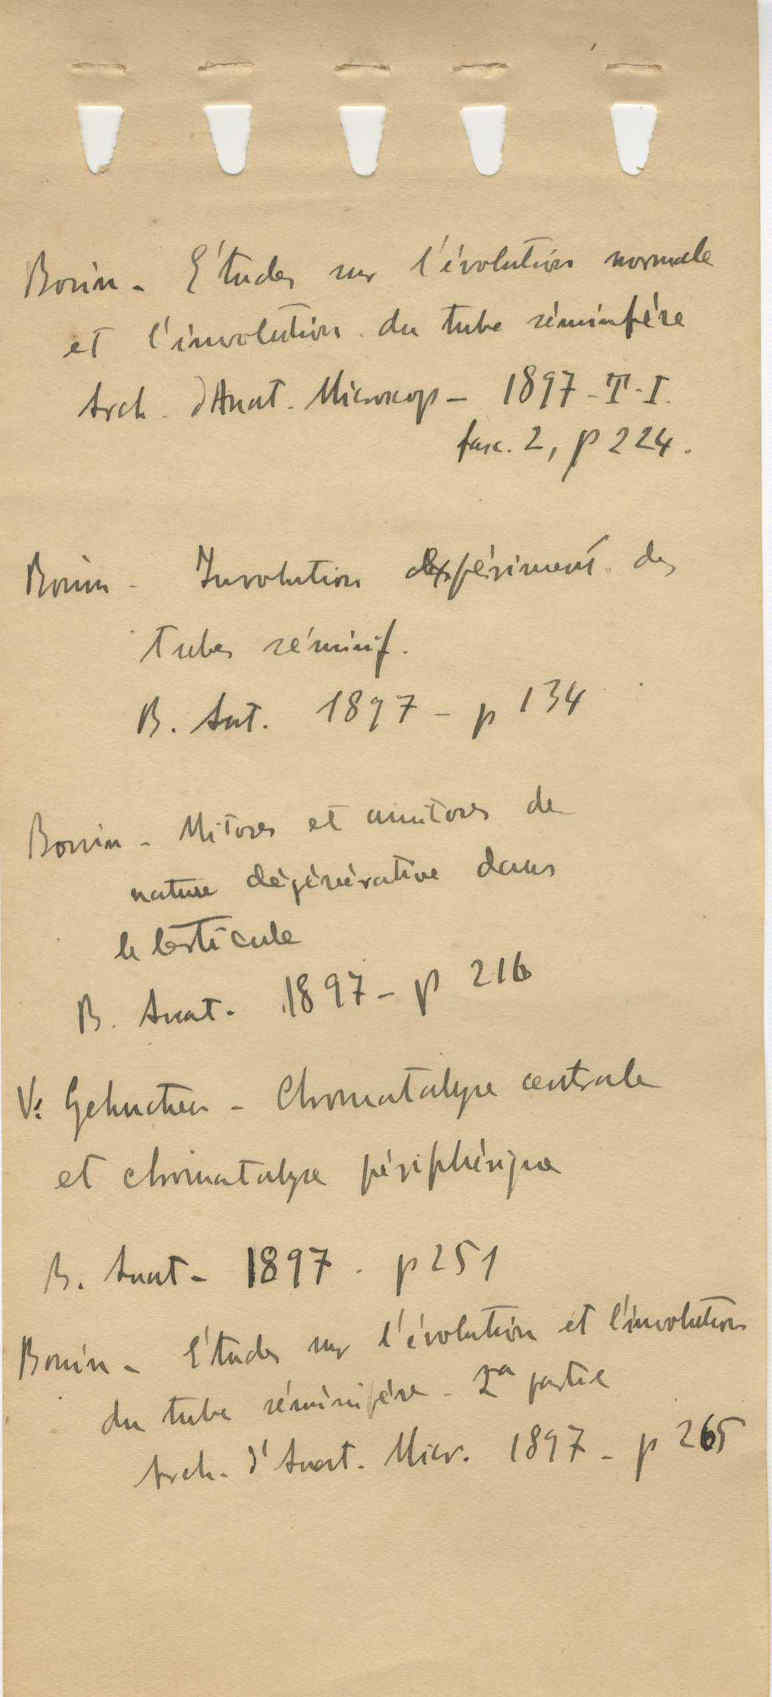 Bouin - Études sur l'évolution normale
et l'involution du tube séminifère
Arch. d'Anat. Microscop - 1897 - T. I.
fasc. 2, p 224.
Bouin - Involution expériment. des
tubes séminif.
B. Anat. 1897 - p 134
Bouin - Mitoses et amitoses de
nature dégénérative dans
le testicule
B. Anat. 1897 - p 216
V. Gehuchten - Chromatolyse centrale
et chromatolyse périphérique
B. Anat - 1897 - p 251
Bouin - Études sur l'évolution et l'involution
du tube séminifère - 2a partie
Arch. d'Anat. Micr. 1897 - p 265